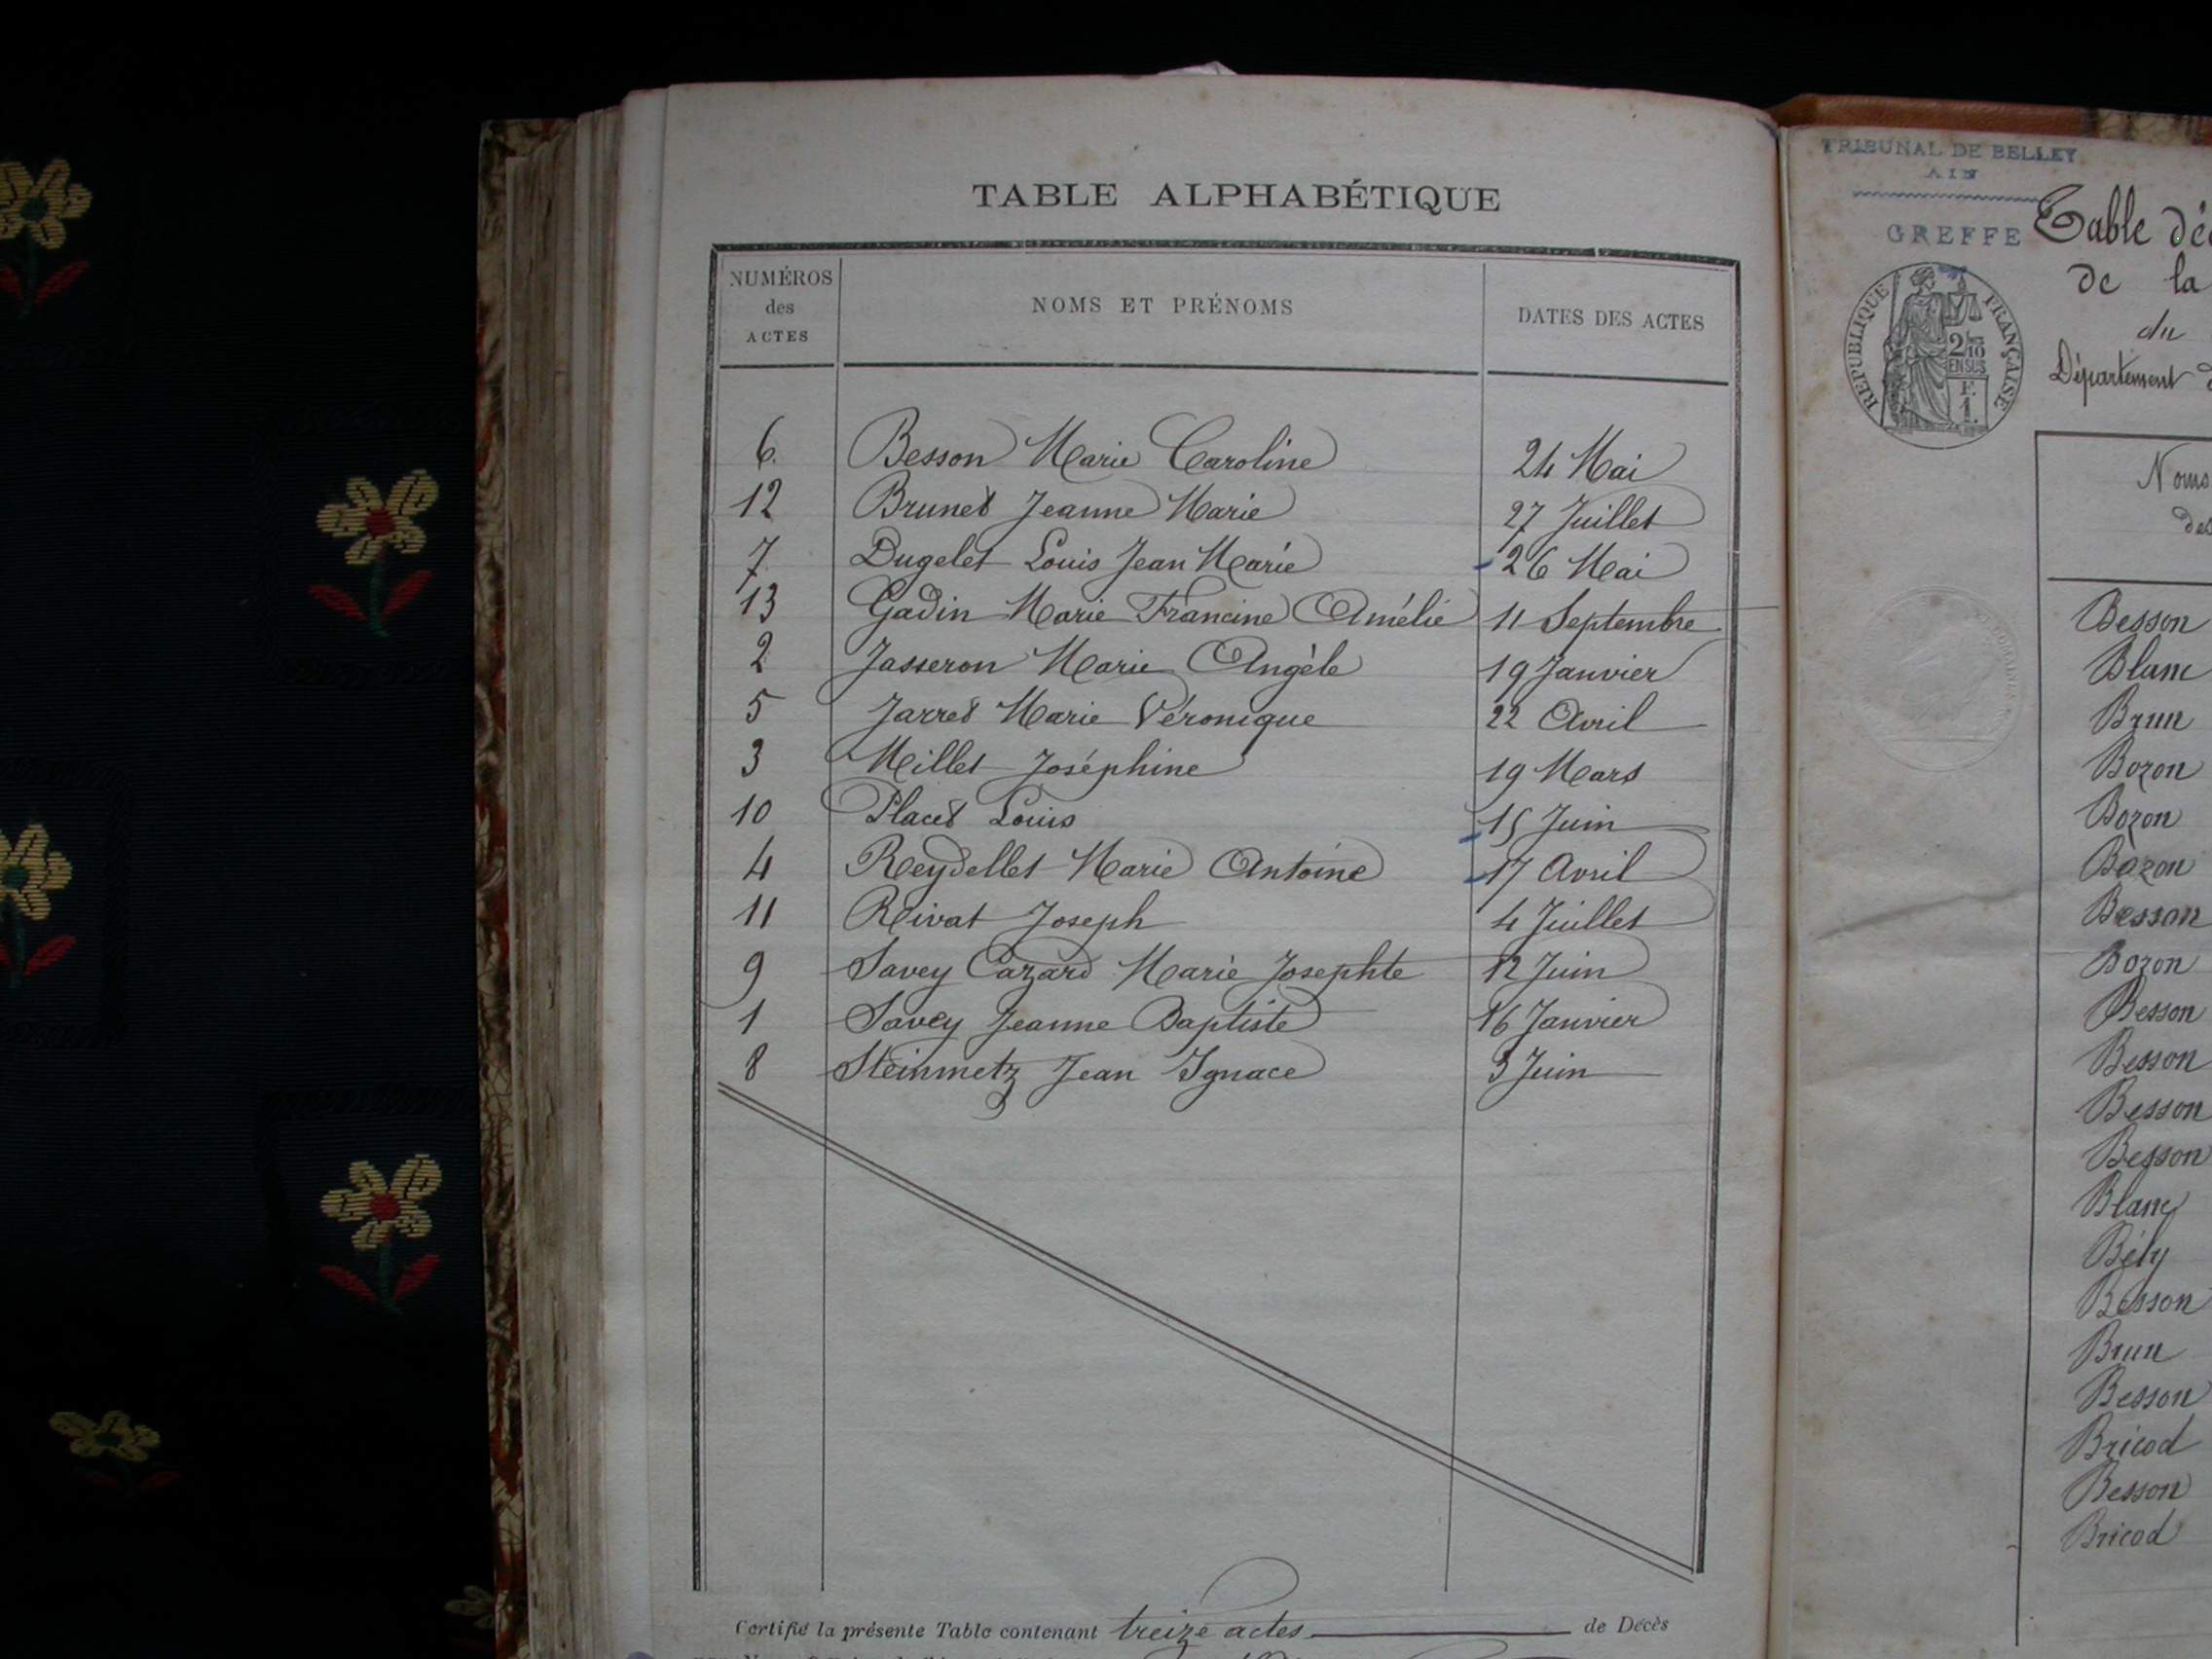 TABLE ALPHABÉTIQUE
NUMÉROS des ACTES NOMS ET PRÉNOMS DATES DES ACTES
6. Besson Marie Caroline 24 Mai
12 Brunet Jeanne Marie 27 Juillet
7. Dugelet Louis Jean Marie 26 Mai
13 Gadin Marie Francine Amélie 11 Septembre
2 Jasseron Marie Angèle 19 Janvier
5 Jarret Marie Véronique 22 Avril
3 Millet Joséphine 19 Mars
10 Placet Louis 15 Juin
4 Reydellet Marie Antoine 17 Avril
11 Rivat Joseph 4 Juillet
9 Savey Cazard Marie Josephte 12 Juin
1 Savey Jeanne Baptiste 16 Janvier
8 Steinmetz Jean Ignace 3 Juin
Certifié la présente Table contenant treize actes de Décès
TRIBUNAL DE BELLEY
AIN
GREFFE
Table
de la
du
Département
RÉPUBLIQUE FRANÇAISE
2/10
EN SUS
F.
1.
Noms
des
Besson
Blanc
Brun
Bozon
Bozon
Bozon
Besson
Bozon
Besson
Besson
Besson
Besson
Blanc
Bély
Besson
Brun
Besson
Bricod
Besson
Bricod